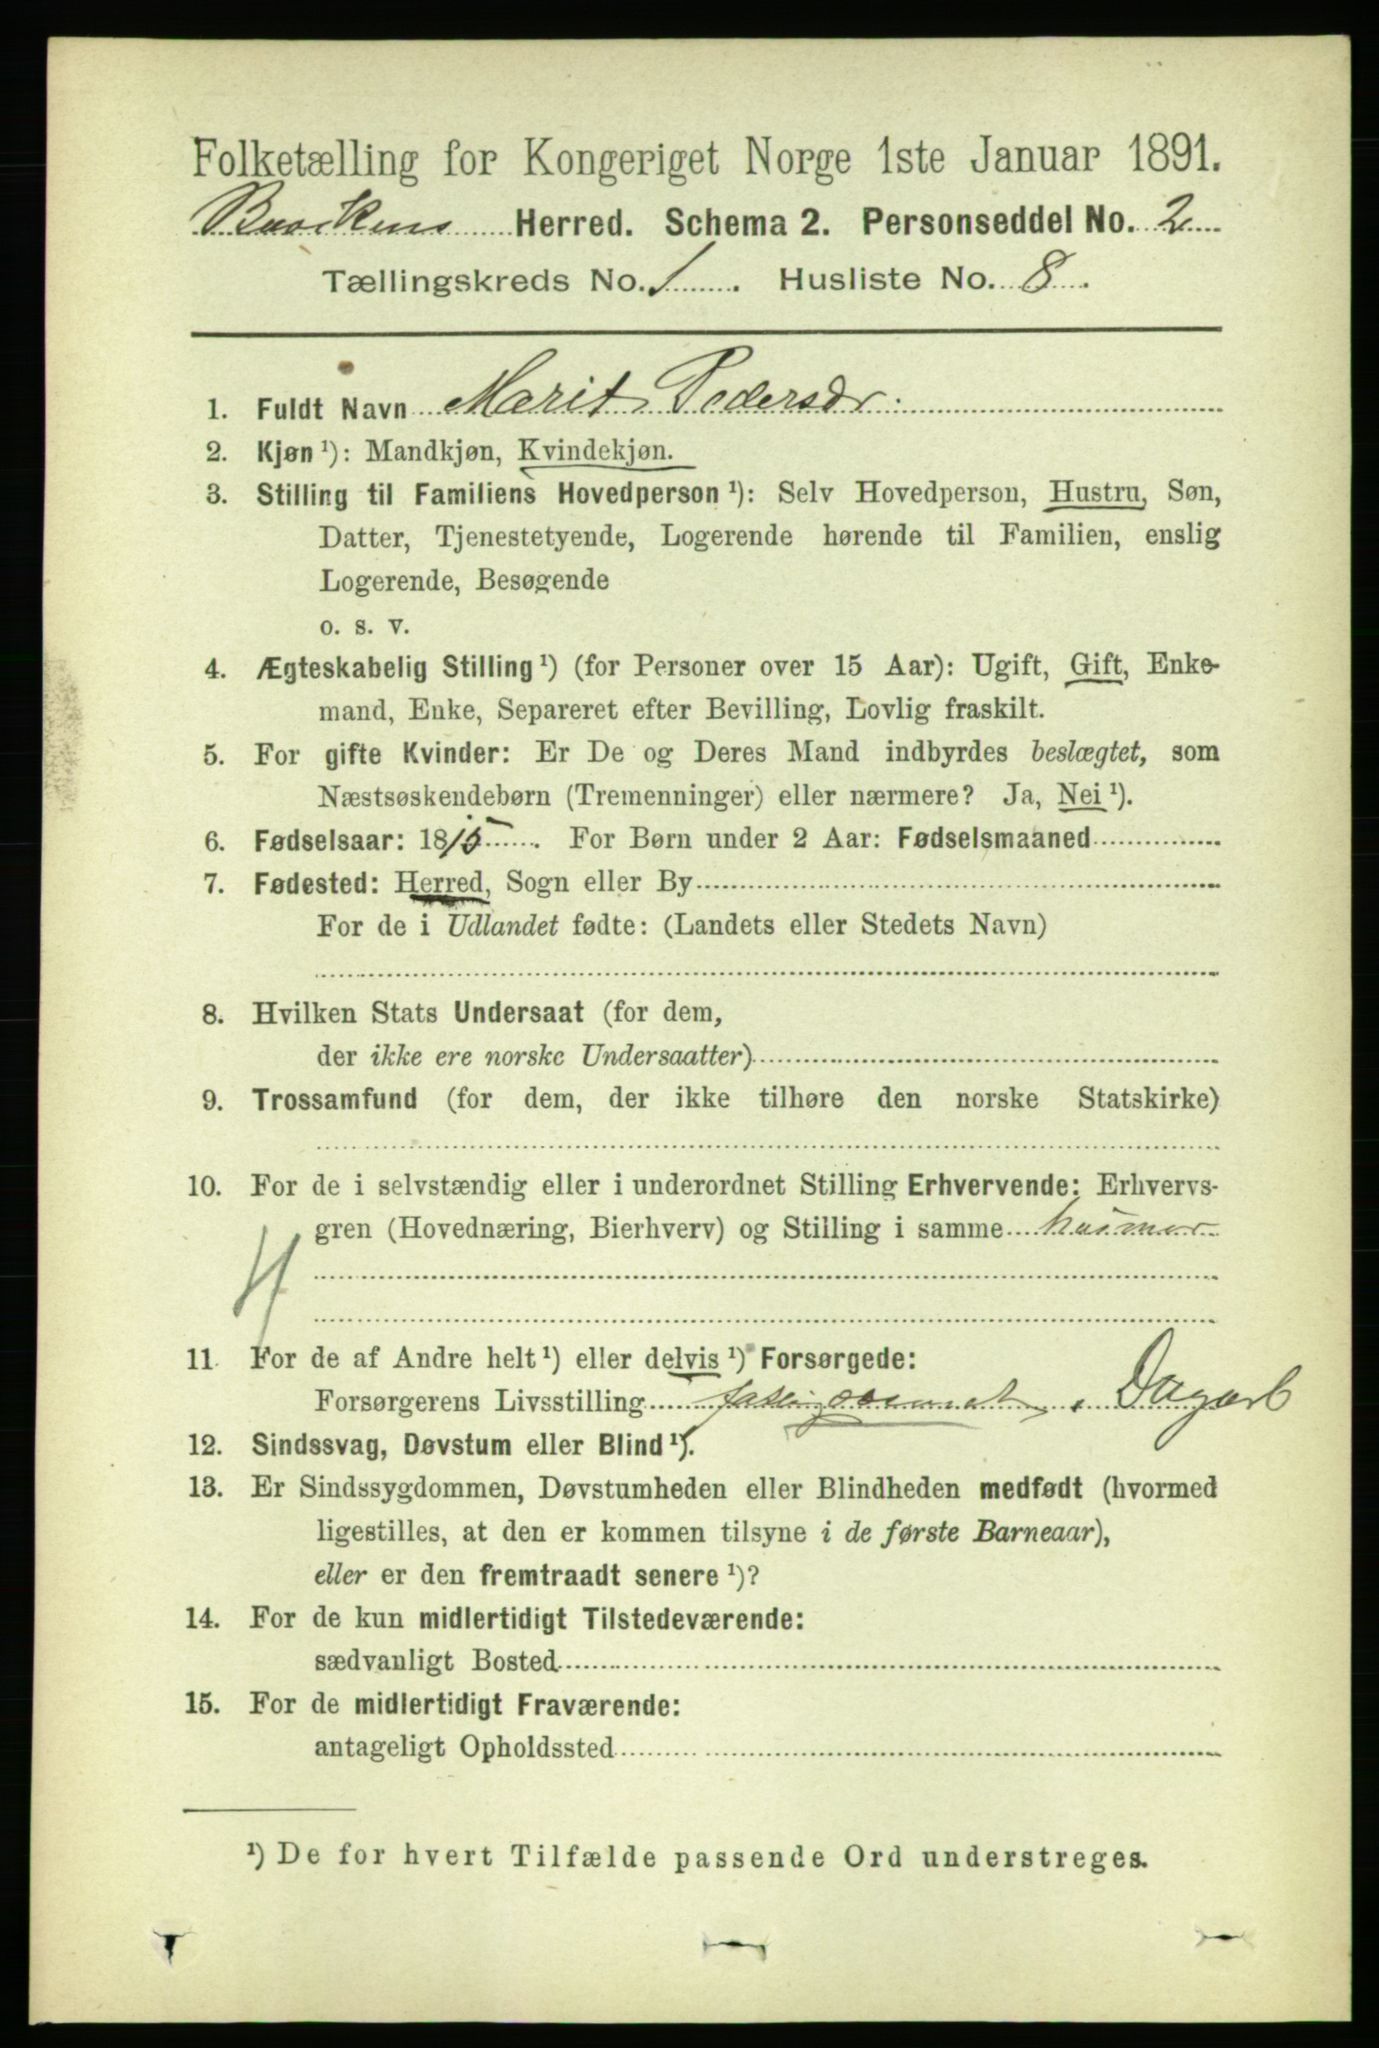 Folketælling for Kongeriget Norge 1ste Januar 1891.
Herred. Schema 2. Personseddel No. 2
Tællingskreds No. 1. Husliste No. 8.
1. Fuldt Navn Marit Pedersdr.
2. Kjøn ¹): Mandkjøn, Kvindekjøn.
3. Stilling til Familiens Hovedperson ¹): Selv Hovedperson, Hustru, Søn,
Datter, Tjenestetyende, Logerende hørende til Familien, enslig
Logerende, Besøgende
o. s. v.
4. Ægteskabelig Stilling ¹) (for Personer over 15 Aar): Ugift, Gift, Enke-
mand, Enke, Separeret efter Bevilling, Lovlig fraskilt.
5. For gifte Kvinder: Er De og Deres Mand indbyrdes beslægtet, som
Næstsøskendebørn (Tremenninger) eller nærmere? Ja, Nei ¹).
6. Fødselsaar: 1815. For Børn under 2 Aar: Fødselsmaaned
7. Fødested: Herred, Sogn eller By
For de i Udlandet fødte: (Landets eller Stedets Navn)
8. Hvilken Stats Undersaat (for dem,
der ikke ere norske Undersaatter)
9. Trossamfund (for dem, der ikke tilhøre den norske Statskirke)
10. For de i selvstændig eller i underordnet Stilling Erhvervende: Erhvervs-
gren (Hovednæring, Bierhverv) og Stilling i samme husmor
4
11. For de af Andre helt ¹) eller delvis ¹) Forsørgede:
Forsørgerens Livsstilling Dagarb
12. Sindssvag, Døvstum eller Blind ¹).
13. Er Sindssygdommen, Døvstumheden eller Blindheden medfødt (hvormed
ligestilles, at den er kommen tilsyne i de første Barneaar),
eller er den fremtraadt senere ¹)?
14. For de kun midlertidigt Tilstedeværende:
sædvanligt Bosted
15. For de midlertidigt Fraværende:
antageligt Opholdssted
¹) De for hvert Tilfælde passende Ord understreges.